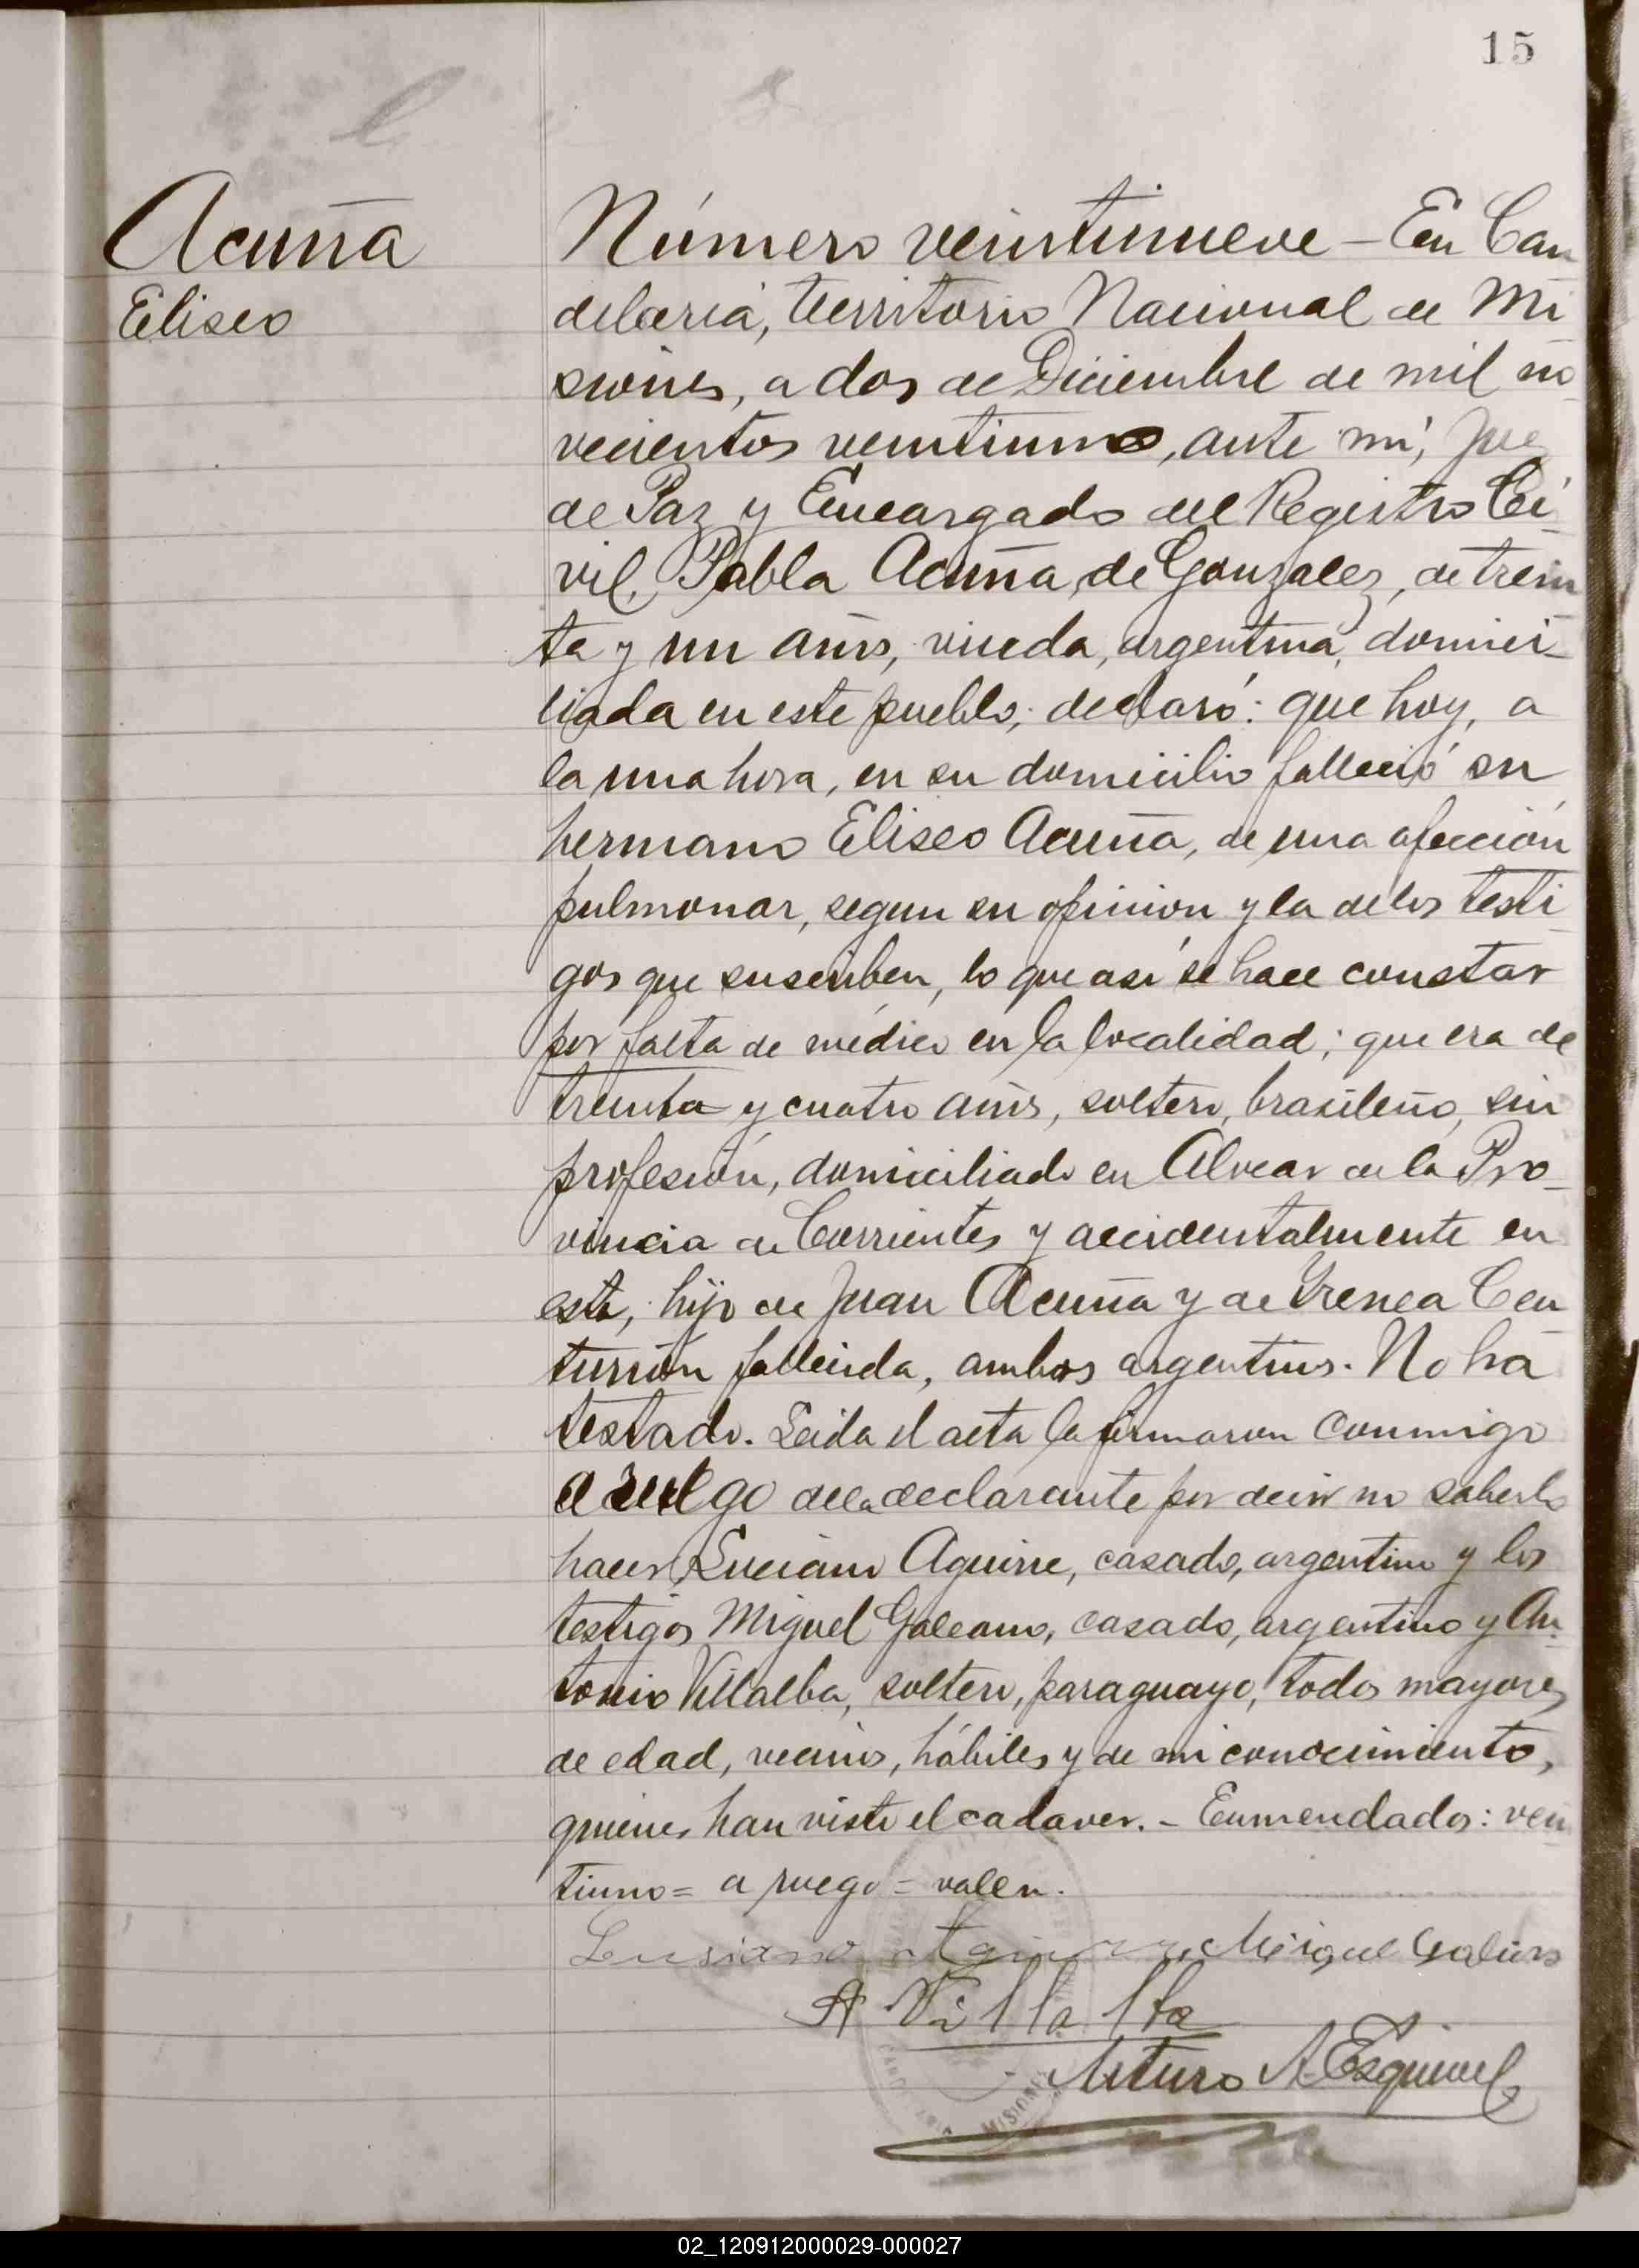 15
Acuña
Eliseo
Número veintinueve – En Can
delaria, territorio Nacional de Mi
siones, a dos de Diciembre de mil no
vecientos veintiuno, ante mí, Juez
de Paz y Encargado del Registro Ci-
vil, Pabla Acuña de Gonzalez, de trein
ta y un años, viuda, argentina, domici-
liada en este pueblo, declaró: que hoy, a
la una hora, en su domicilio falleció su
hermano Eliseo Acuña, de una afección
pulmonar, segun su opinion y la de los testi
gos que suscriben, lo que así se hace constar
por falta de médico en la localidad; que era de
treinta y cuatro años, soltero, brasileño, sin
profesión, domiciliado en Alvear de la Pro-
vincia de Corrientes y accidentalmente en
este, hijo de Juan Acuña y de Irenea Cen
turión fallecida, ambos argentinos. No ha
testado. Leida el acta la firmaron conmigo
a ruego de la declarante por decir no saberlo
hacer, Luciano Aguirre, casado, argentino y los
testigos Miguel Galeano, casado, argentino y An-
tonio Villalba, soltero, paraguayo, todos mayores
de edad, vecinos, hábiles y de mi conocimiento,
quienes han visto el cadaver. – Enmendados: vein
tiuno = a ruego = valen.
Lusiano Aguirre Miguel Galiano
A Villalba
Arturo A. Esquivel
MISIONES
02_120912000029-000027